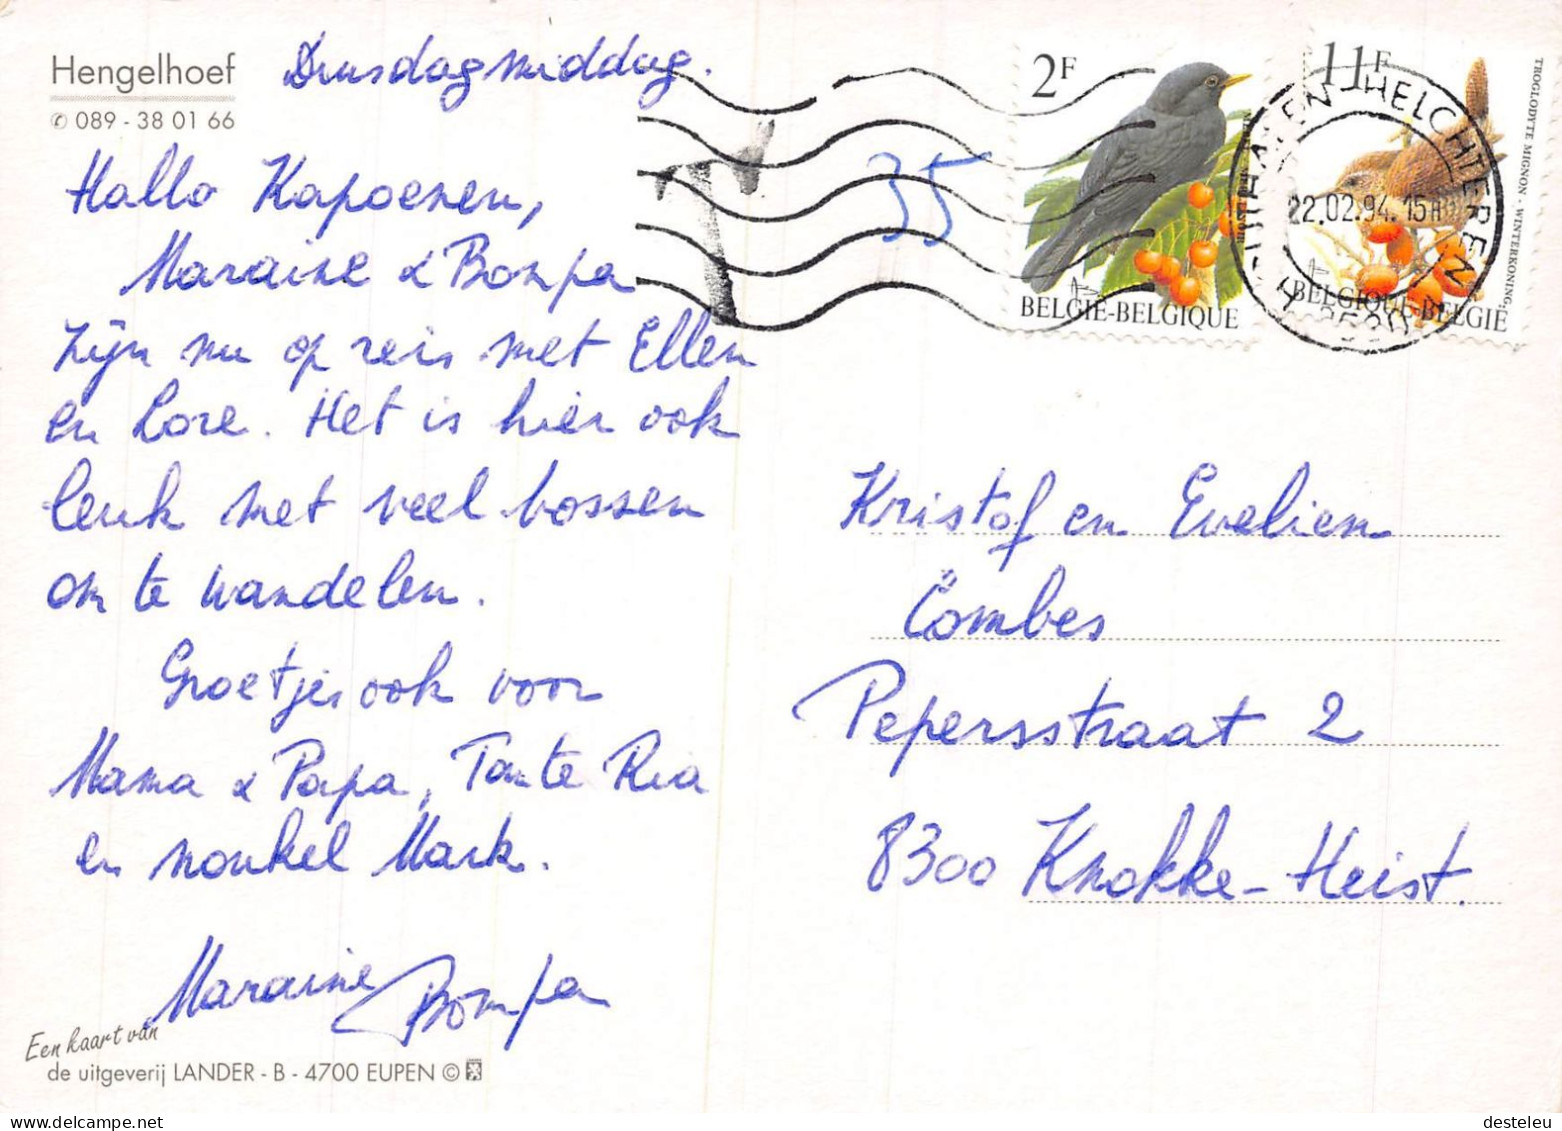 Hengelhoef
✆ 089 - 38 01 66
Dinsdagmiddag.
Hallo Kapoenen,
Maraine & Bompa
zijn nu op reis met Ellen
en Lore. Het is hier ook
leuk met veel bossen
om te wandelen.
Groetjes ook voor
Mama & Papa, Tante Ria
en nonkel Mark.
Maraine Bompa
Een kaart van
de uitgeverij LANDER - B - 4700 EUPEN ©
35
2F
BELGIE-BELGIQUE
11F
TROGLODYTE MIGNON - WINTERKONING
BELGIQUE-BELGIË
HOUTHALEN-HELCHTEREN
22.02.94.15H
3530
Kristof en Evelien
Combes
Pepersstraat 2
8300 Knokke-Heist.
desteleu